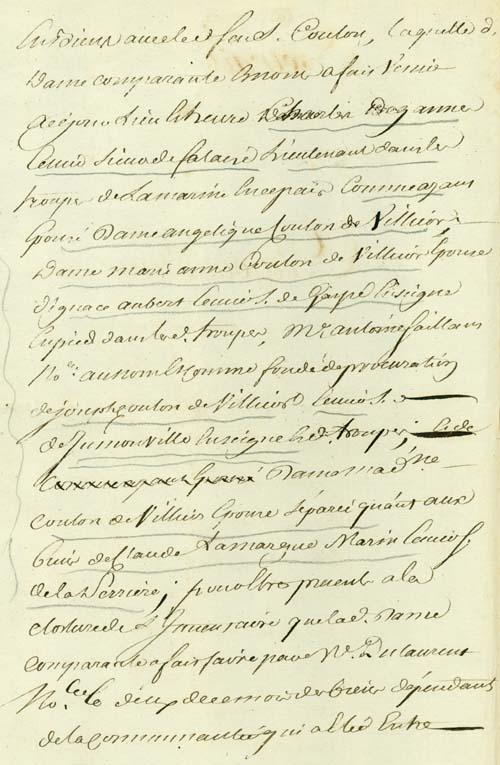 avec led feu S. Coulon, laquelle d.
Dame comparante a fait venir
Charles Dazanne
Ecuier Sieur de Lieutenant dans les
troupes de La marine En ce païs Comme ayant
Epousé Dame angelique Coulon de Villiers,
Dame marie anne Coulon de Villiers Epouse
d'ignace aubert Ecuier S. de Gaspé Enseigne
En pied dans lesd. troupes, Me antoine faillant
No.re au nom Et comme fondé de procuration
de joseph Coulon de Villiers Ecuier S.
de Jumonville Enseigne Esd. troupes;
Dame mad.ne
Coulon de Villiers Epouse Séparée quant aux
biens de Claude Lamarque Marin Ecuier S.
de la Perriere; pour Etre presents a la
cloture de L'Inventaire que lad. Dame
comparante a fait faire par Me. Dulaurent
No.re le deux de ce mois des biens dépendans
de la communauté qui a Eté Entre